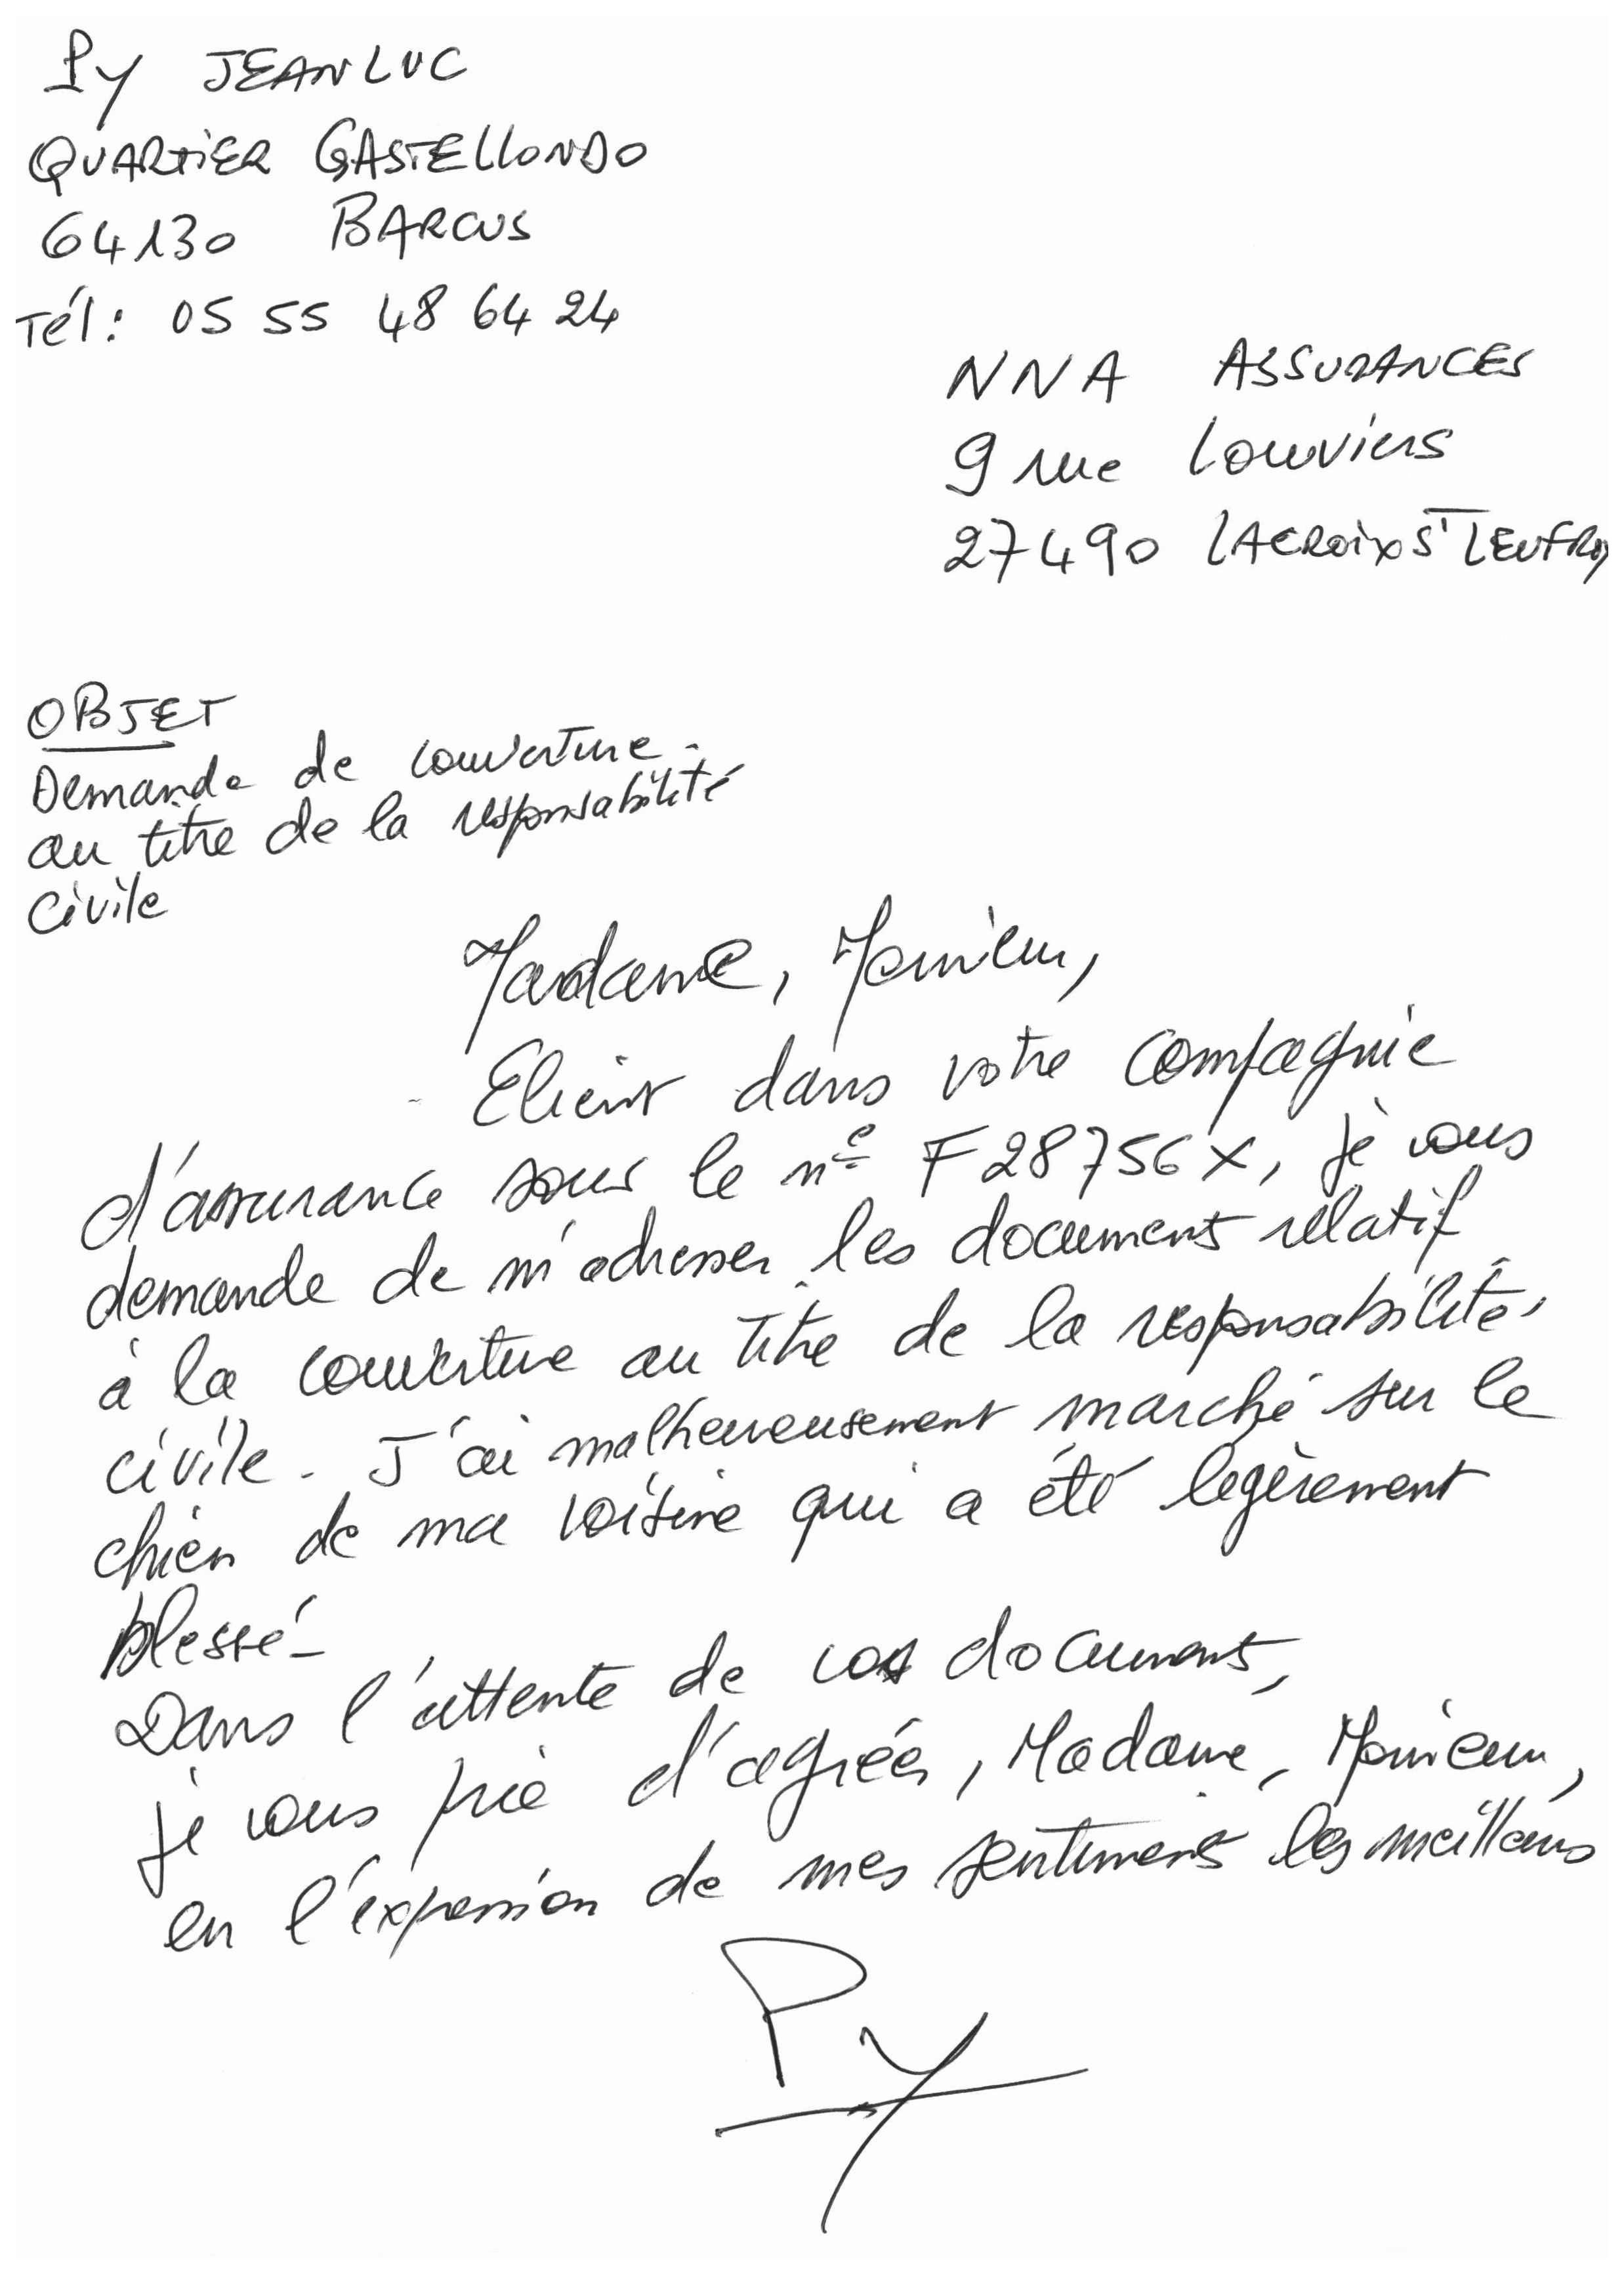 Py JEANLUC
QUARTIER GASTELLONDO
64130 BARCUS
Tél: 05 55 48 64 24
NNA ASSURANCES
9 rue Louviers
27490 LACROIX ST LEUFROY
OBJET
Demande de couverture
au titre de la responsabilité
civile
Madame, Monsieur,
Client dans votre compagnie
d'assurance sous le n° F28756X, je vous
demande de m'adresser les document relatif
à la couverture au titre de la responsabilité
civile. J'ai malheureusement marché sur le
chien de ma voisine qui a été legèrement
blessé.
Dans l'attente de vos documents,
je vous prie d'agréer, Madame, Monsieur,
en l'expression de mes sentiments les meilleurs
Py